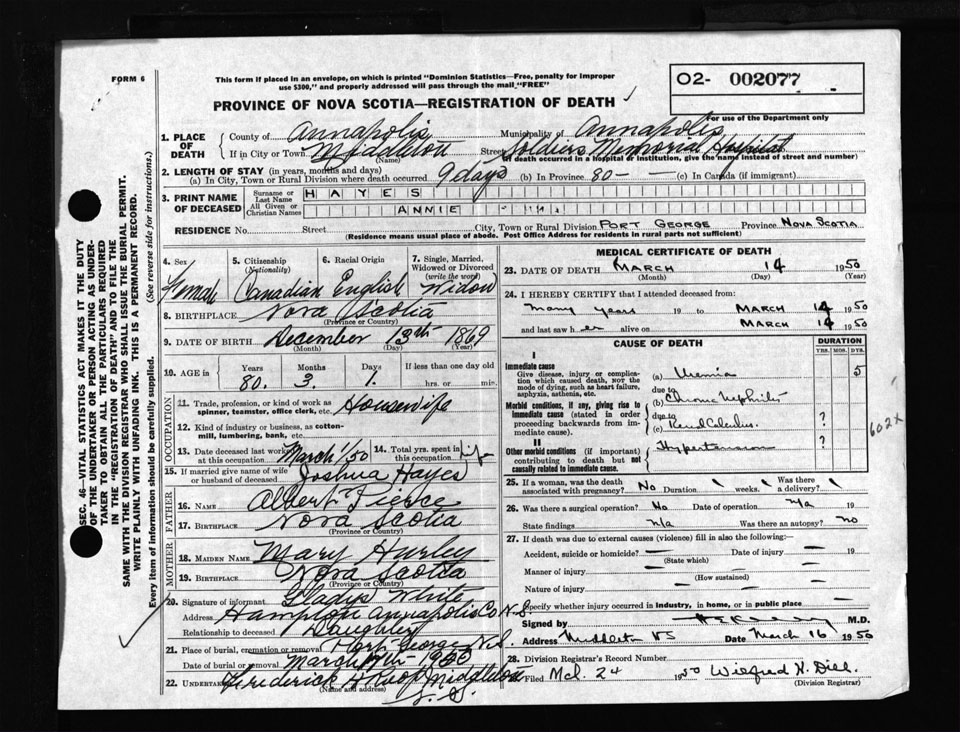 FORM 6
This form if placed in an envelope, on which is printed "Dominion Statistics—Free, penalty for improper
use $300," and properly addressed will pass through the mail "FREE"
O2- 002077
PROVINCE OF NOVA SCOTIA—REGISTRATION OF DEATH
For use of the Department only
1. PLACE OF DEATH
County of Annapolis Municipality of Annapolis
If in City or Town Middleton Street Soldiers Memorial Hospital
(Name) (If death occurred in a hospital or institution, give the name instead of street and number)
2. LENGTH OF STAY (in years, months and days)
(a) In City, Town or Rural Division where death occurred 9 days (b) In Province 80 — (c) In Canada (if immigrant)
3. PRINT NAME OF DECEASED
Surname or Last Name HAYES
All Given or Christian Names ANNIE
RESIDENCE No. Street City, Town or Rural Division PORT GEORGE Province NOVA SCOTIA
(Residence means usual place of abode. Post Office Address for residents in rural parts not sufficient)
4. Sex Female
5. Citizenship (Nationality) Canadian
6. Racial Origin English
7. Single, Married, Widowed or Divorced (write the word) Widow
8. BIRTHPLACE Nova Scotia
(Province or Country)
9. DATE OF BIRTH December 13th 1869
(Month) (Day) (Year)
10. AGE in Years 80. Months 3. Days 1. If less than one day old hrs. or min.
OCCUPATION
11. Trade, profession, or kind of work as spinner, teamster, office clerk, etc. Housewife
12. Kind of industry or business, as cotton-mill, lumbering, bank, etc.
13. Date deceased last worked at this occupation March 1/50
14. Total yrs. spent in this occupation
15. If married give name of wife or husband of deceased Joshua Hayes
FATHER
16. NAME Albert Pierce
17. BIRTHPLACE Nova Scotia
MOTHER
18. MAIDEN NAME Mary Hurley
19. BIRTHPLACE Nova Scotia
(Province or Country)
20. Signature of informant Gladys White
Address Hampton Annapolis Co N.S.
Relationship to deceased Daughter
21. Place of burial, cremation or removal Port George N.S.
Date of burial or removal March 1950
22. Undertaker Frederick H Roop Middleton
(Name and address) N. S.
MEDICAL CERTIFICATE OF DEATH
23. DATE OF DEATH MARCH 14 1950
(Month) (Day) (Year)
24. I HEREBY CERTIFY that I attended deceased from:
many years 19 to MARCH 14 1950
and last saw her alive on MARCH 14 1950
CAUSE OF DEATH
DURATION
YRS. MOS. DYS.
I
Immediate cause
Give disease, injury or complication which caused death, NOT the mode of dying, such as heart failure, asphyxia, asthenia, etc.
(a) Uremia 5
due to
(b) Chronic Nephritis ?
Morbid conditions, if any, giving rise to immediate cause (stated in order proceeding backwards from immediate cause).
due to
(c) Renal Calculus. ?
II
Other morbid conditions (if important) contributing to death but not causally related to immediate cause.
Hypertension ?
602X
25. If a woman, was the death associated with pregnancy? No Duration weeks. Was there a delivery?
26. Was there a surgical operation? No Date of operation n/a 19
State findings n/a Was there an autopsy? no
27. If death was due to external causes (violence) fill in also the following:—
Accident, suicide or homicide? — Date of injury — 19
(State which)
Manner of injury —
(How sustained)
Nature of injury —
Specify whether injury occurred in industry, in home, or in public place —
Signed by M.D.
Address Middleton NS Date March 16 1950
28. Division Registrar's Record Number
Filed Mch. 24 1950 Wilfred H. Dill.
(Division Registrar)
SEC. 46—VITAL STATISTICS ACT MAKES IT THE DUTY
OF THE UNDERTAKER OR PERSON ACTING AS UNDERTAKER
TO OBTAIN ALL THE PARTICULARS REQUIRED
IN THE "REGISTRATION OF DEATH" AND TO FILE THE
SAME WITH THE DIVISION REGISTRAR WHO SHALL ISSUE THE BURIAL PERMIT.
WRITE PLAINLY WITH UNFADING INK. THIS IS A PERMANENT RECORD.
Every item of information should be carefully supplied. (See reverse side for instructions.)